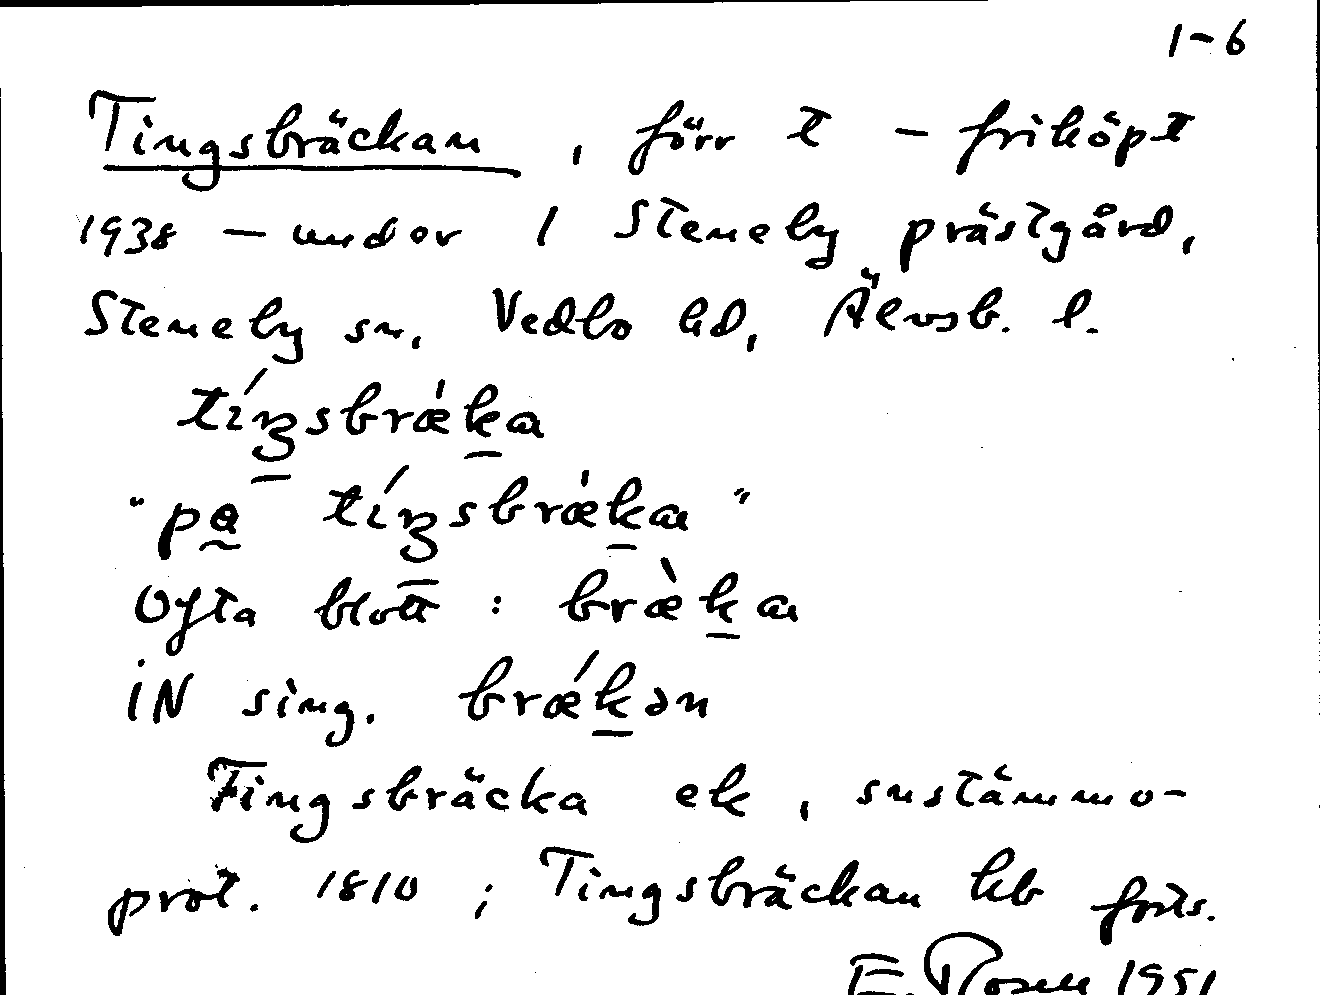 1-6
Tingsbräckan, förr t - friköpt
1938 - under 1 Steneby prästgård,
Steneby sn, Vedbo hd, Älvsb. l.
tíŋsbræ̍ka
"pa tíŋsbræ̍kan"
Ofta blott : bræ̀kan
iN sing. brǽkən
Fingsbräcka ek, snstämmo-
prot. 1810 ; Tingsbräckan hb forts.
E. Rosell 1951